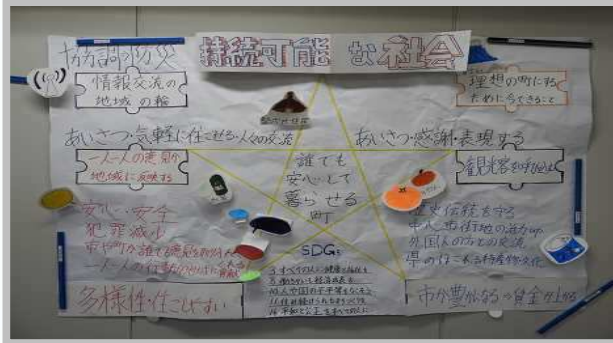 協調・防災
持続可能な社会
情報交流の
地域の輪
理想の町にする
ために今できること
あいさつ・気軽に住こせる・人々の交流
あいさつ・感謝・表現する
一人一人の意見が
地域に反映する
誰でも
安心して
暮らせる
町
観光客を
安心・安全
犯罪減少
市や町が誰でも意見を
一人一人の行動が
歴史伝統を守る
中心市街地の活力
外国人の方との交流
県の特産物・文化
SDGs
3.すべての人に健康と福祉を
8.働きがいも経済成長も
10.人や国の不平等をなくそう
11.住み続けられるまちづくりを
16.平和と公正をすべての人に
多様性・住こしやすい
市が豊かなる→賃金が上がる